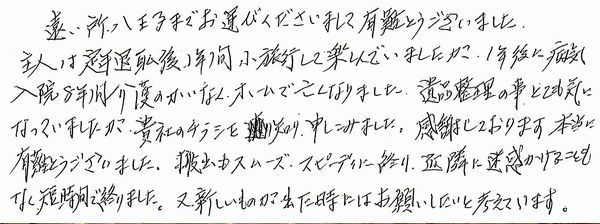 遠い所、八王子までお運びくださいまして有難とうございました。
主人は定年退職後、1年間小旅行して楽しんでいましたが、1年後に病気
入院8年間介護のかいなくホームで亡くなりました。遺品整理の事とても気に
なっていましたが、貴社のチラシを知り、申しこみました。感謝しております 本当に
有難とうございました。搬出もスムーズ、スピーディに終り、近隣に迷惑かけることも
なく短時間で終りました。又新しいものが出た時にはお願いしたいと考えています。